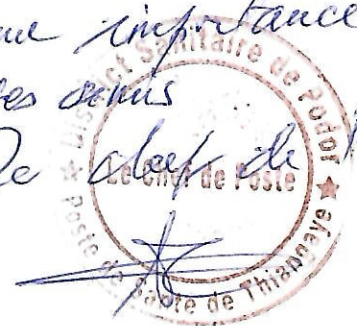 importance
Le chef de
District Sanitaire de Podor
Le Chef de Poste
Poste de Santé de Thiangaye